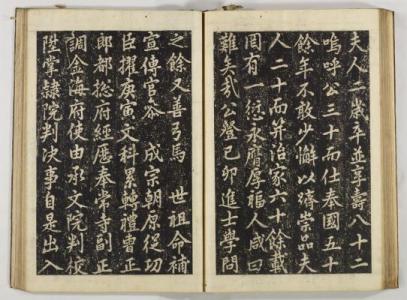 夫人一歲卒並享壽八十二
嗚呼公三十而仕奉國五十
餘年不敢少懈以躋崇品夫
人二十而笄治家六十餘載
罔有一愆永膺厚福人咸曰
難矣哉公登己卯進士學問
之餘又善弓馬 世祖命補
宣傳官者 成宗朝原從功
臣擢庚寅文科累轉禮曹正
郎都摠府經歷奉常寺副正
調金海府使由承文院判校
陞掌隷院判決事自是出入